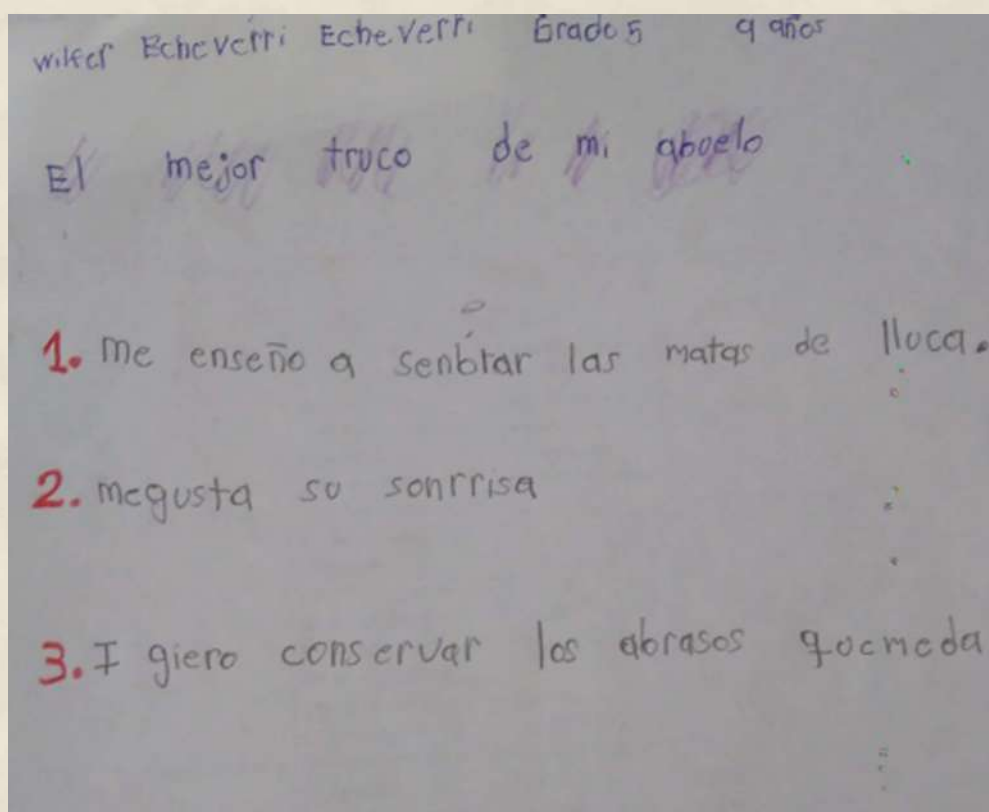 wilfer Echeverri Echeverri Grado 5 9 años
El mejor truco de mi abuelo
1. me enseño a senbrar las matas de lluca.
2. megusta su sonrrisa
3. I giero conservar los abrasos qucmeda